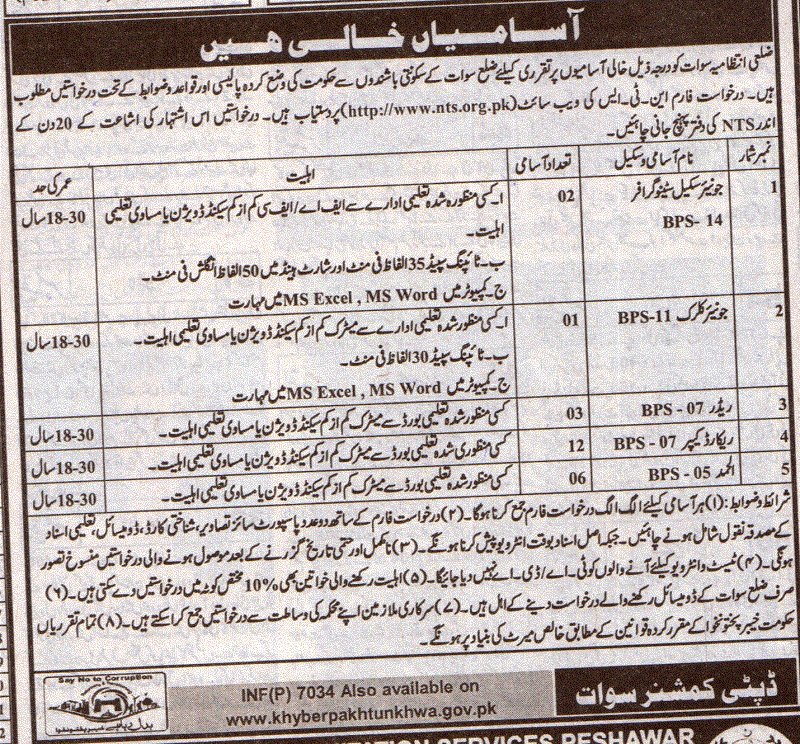 آسامیاں خالی ہیں
ضلعی انتظامیہ سوات کو درجہ ذیل خالی آسامیوں پر تقرری کیلئے ضلع سوات کے سکونتی باشندوں سے حکومت کی وضع کردہ پالیسی اور قواعد و ضوابط کے تحت درخواستیں مطلوب
ہیں۔ درخواست فارم این۔ٹی۔ایس کی ویب سائٹ (http://www.nts.org.pk) پر دستیاب ہیں۔ درخواستیں اس اشتہار کی اشاعت کے 20 دن کے
اندر NTS کی دفتر پہنچ جانی چائیں۔
نمبر شمار نام آسامی و سکیل تعداد آسامی اہلیت عمر کی حد
1 جونیئر سکیل سٹینوگرافر 02 ا۔ کسی منظورہ شدہ تعلیمی ادارے سے ایف اے/ ایف سی کم از کم سیکنڈ ڈویژن یا مساوی تعلیمی 18-30 سال
BPS- 14 اہلیت۔
ب۔ ٹائپنگ سپیڈ 35 الفاظ فی منٹ اور شارٹ ہینڈ میں 50 الفاظ انگلش فی منٹ۔
ج۔ کمپیوٹر میں MS Excel , MS Word میں مہارت
2 جونیئر کلرک BPS-11 01 ا۔ کسی منظور شدہ تعلیمی ادارے سے میٹرک کم از کم سیکنڈ ڈویژن یا مساوی تعلیمی اہلیت۔ 18-30 سال
ب۔ ٹائپنگ سپیڈ 30 الفاظ فی منٹ۔
ج۔ کمپیوٹر میں MS Excel , MS Word میں مہارت
3 ریڈر BPS - 07 03 کسی منظور شدہ تعلیمی بورڈ سے میٹرک کم از کم سیکنڈ ڈویژن یا مساوی تعلیمی اہلیت۔ 18-30 سال
4 ریکارڈ کیپر BPS - 07 12 کسی منظوری شدہ تعلیمی بورڈ سے میٹرک کم از کم سیکنڈ ڈویژن یا مساوی تعلیمی اہلیت۔ 18-30 سال
5 اہلمد BPS - 05 06 کسی منظور شدہ تعلیمی بورڈ سے میٹرک کم از کم سیکنڈ ڈویژن یا مساوی تعلیمی اہلیت۔ 18-30 سال
شرائط و ضوابط: (۱) ہر آسامی کیلئے الگ الگ درخواست فارم جمع کرنا ہوگا۔ (۲) درخواست فارم کے ساتھ دو عدد پاسپورٹ سائز تصاویر، شناختی کارڈ، ڈومیسائل، تعلیمی اسناد
کے مصدقہ نقول شامل ہونے چائیں۔ جبکہ اصل اسناد بوقت انٹرویو پیش کرنا ہونگے۔ (۳) نامکمل اور حتمی تاریخ گزرنے کے بعد موصول ہونے والی درخواستیں منسوخ تصور
ہونگی۔ (۴) ٹیسٹ و انٹرویو کیلئے آنے والوں کو ٹی۔اے/ ڈی۔اے نہیں دیا جائیگا۔ (۵) اہلیت رکھنے والی خواتین بھی 10% مختص کوٹہ میں درخواستیں دے سکتی ہیں۔ (۶)
صرف ضلع سوات کے ڈومیسائل رکھنے والے درخواست دینے کے اہل ہیں۔ (۷) سرکاری ملازمین اپنے محکمہ کی وساطت سے درخواستیں جمع کراسکتے ہیں۔ (۸) تمام تقرریاں
حکومت خیبر پختونخوا کے مقرر کردہ قوانین کے مطابق خالص میرٹ کی بنیاد پر ہونگے۔
ڈپٹی کمشنر سوات
INF(P) 7034 Also available on
www.khyberpakhtunkhwa.gov.pk
Say No to Corruption
SERVICES PESHAWAR